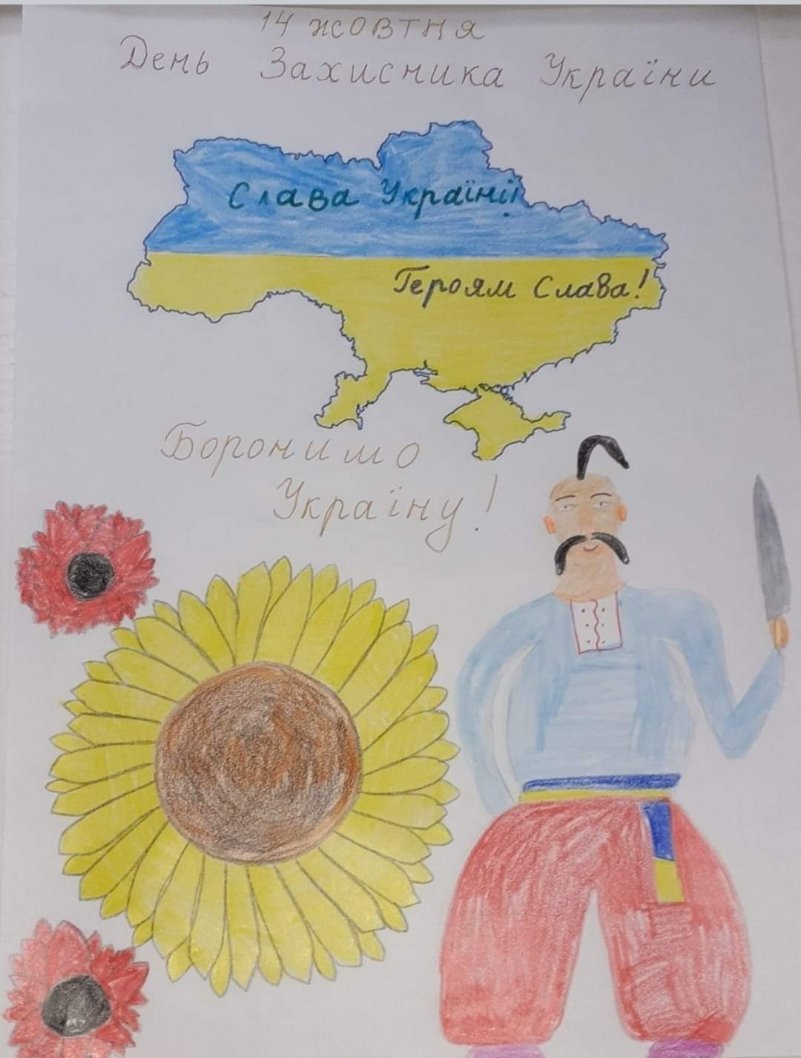 14 жовтня
День Захисника України
Слава Україні!
Героям Слава!
Боронимо
Україну!